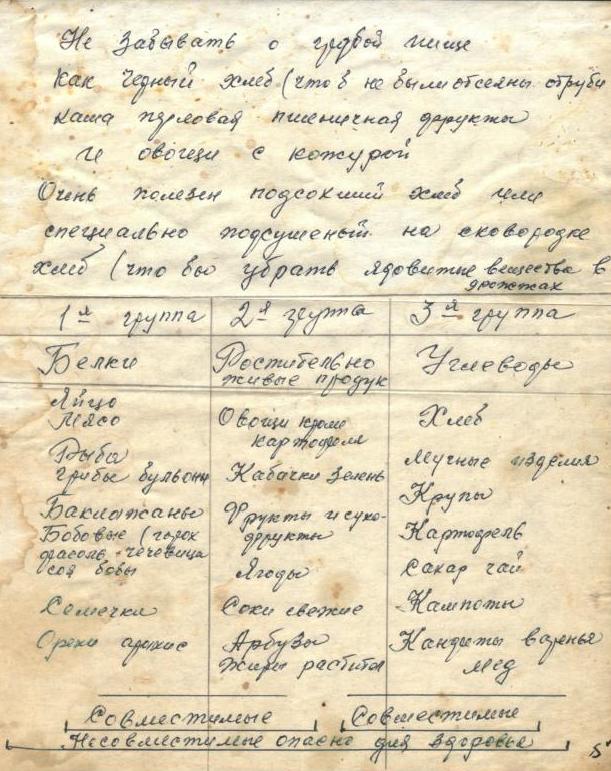 Не забывать о грубой пище
как черный хлеб (что б не были отсеяны отруби
каша перловая пшеничная фрукты
и овощи с кожурой
Очень полезен подсохший хлеб или
специально подсушеный на сковородке
хлеб (что бы убрать ядовитые вещества в
дрожжах
1я группа 2я группа 3я группа
Белки Ростительно Углеводы
живые продук
Яйцо
Мясо Овощи кроме Хлеб
картофеля
Рыба Мучные изделия
грибы бульоны Кабачки зелень
Крупы
Баклажаны Фрукты и сухо-
Бобовые (горох фрукты Картофель
фасоль чечевица
соя бобы Ягоды Сахар чай
Семечки Соки свежие Кампоты
Орехи арахис Арбузы Кандиты варенья
Жиры растител мед
Совместимые Совместимые
Несовместимые опасно для здоровья 5